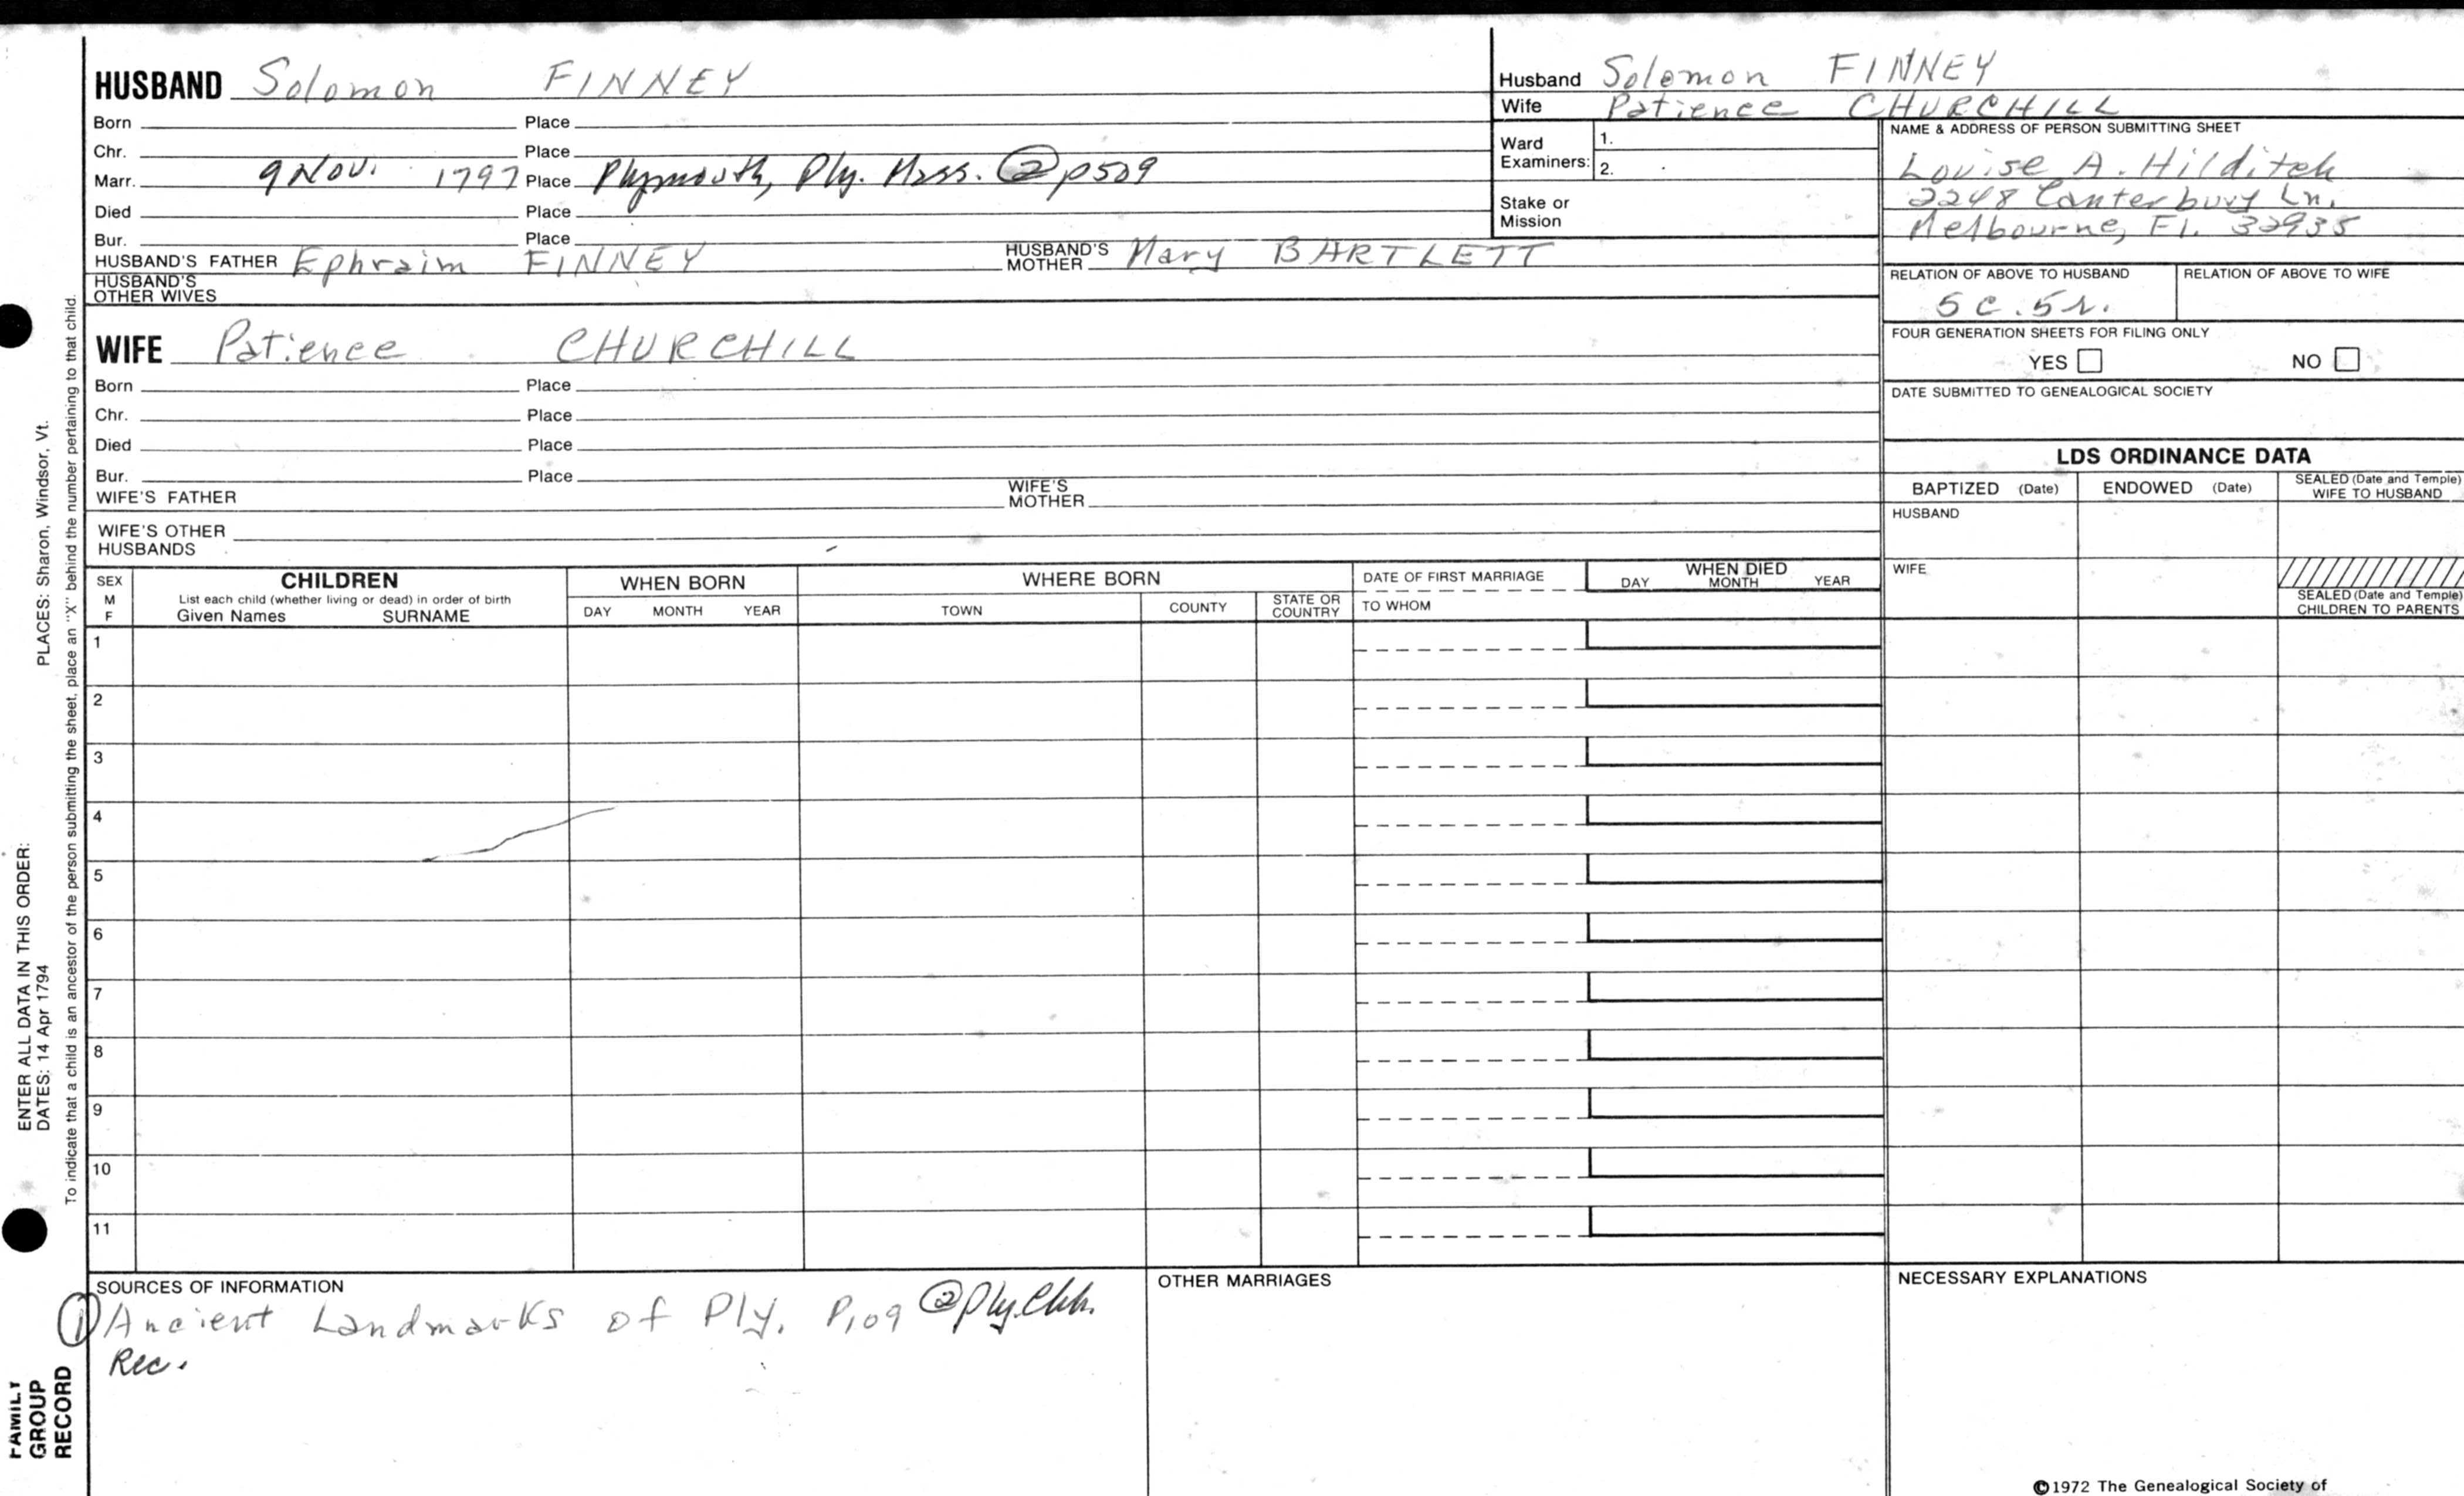 HUSBAND Solomon FINNEY
Born Place
Chr. Place
Marr. 9 Nov. 1797 Place Plymouth, Ply. Mass. ② p509
Died Place
Bur. Place
HUSBAND'S FATHER Ephraim FINNEY HUSBAND'S MOTHER Mary BARTLETT
HUSBAND'S OTHER WIVES
WIFE Patience CHURCHILL
Born Place
Chr. Place
Died Place
Bur. Place
WIFE'S FATHER WIFE'S MOTHER
WIFE'S OTHER HUSBANDS
Husband Solomon FINNEY
Wife Patience CHURCHILL
Ward Examiners: 1.
2.
Stake or Mission
NAME & ADDRESS OF PERSON SUBMITTING SHEET
Louise A. Hilditch
2248 Canterbury Ln.
Melbourne, Fl. 32935
RELATION OF ABOVE TO HUSBAND RELATION OF ABOVE TO WIFE
5 c. 5 r.
FOUR GENERATION SHEETS FOR FILING ONLY
YES NO
DATE SUBMITTED TO GENEALOGICAL SOCIETY
LDS ORDINANCE DATA
BAPTIZED (Date) ENDOWED (Date) SEALED (Date and Temple) WIFE TO HUSBAND
HUSBAND
WIFE
SEALED (Date and Temple) CHILDREN TO PARENTS
SEX M F
CHILDREN
List each child (whether living or dead) in order of birth
Given Names SURNAME
WHEN BORN
DAY MONTH YEAR
WHERE BORN
TOWN COUNTY STATE OR COUNTRY
DATE OF FIRST MARRIAGE
TO WHOM
WHEN DIED
DAY MONTH YEAR
1
2
3
4
5
6
7
8
9
10
11
SOURCES OF INFORMATION
① Ancient Landmarks of Ply. P109 ② Ply. Chh.
Rec.
OTHER MARRIAGES
NECESSARY EXPLANATIONS
©1972 The Genealogical Society of
ENTER ALL DATA IN THIS ORDER:
DATES: 14 Apr 1794 PLACES: Sharon, Windsor, Vt.
To indicate that a child is an ancestor of the person submitting the sheet, place an "X" behind the number pertaining to that child.
FAMILY
GROUP
RECORD